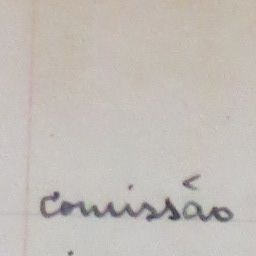 comissão